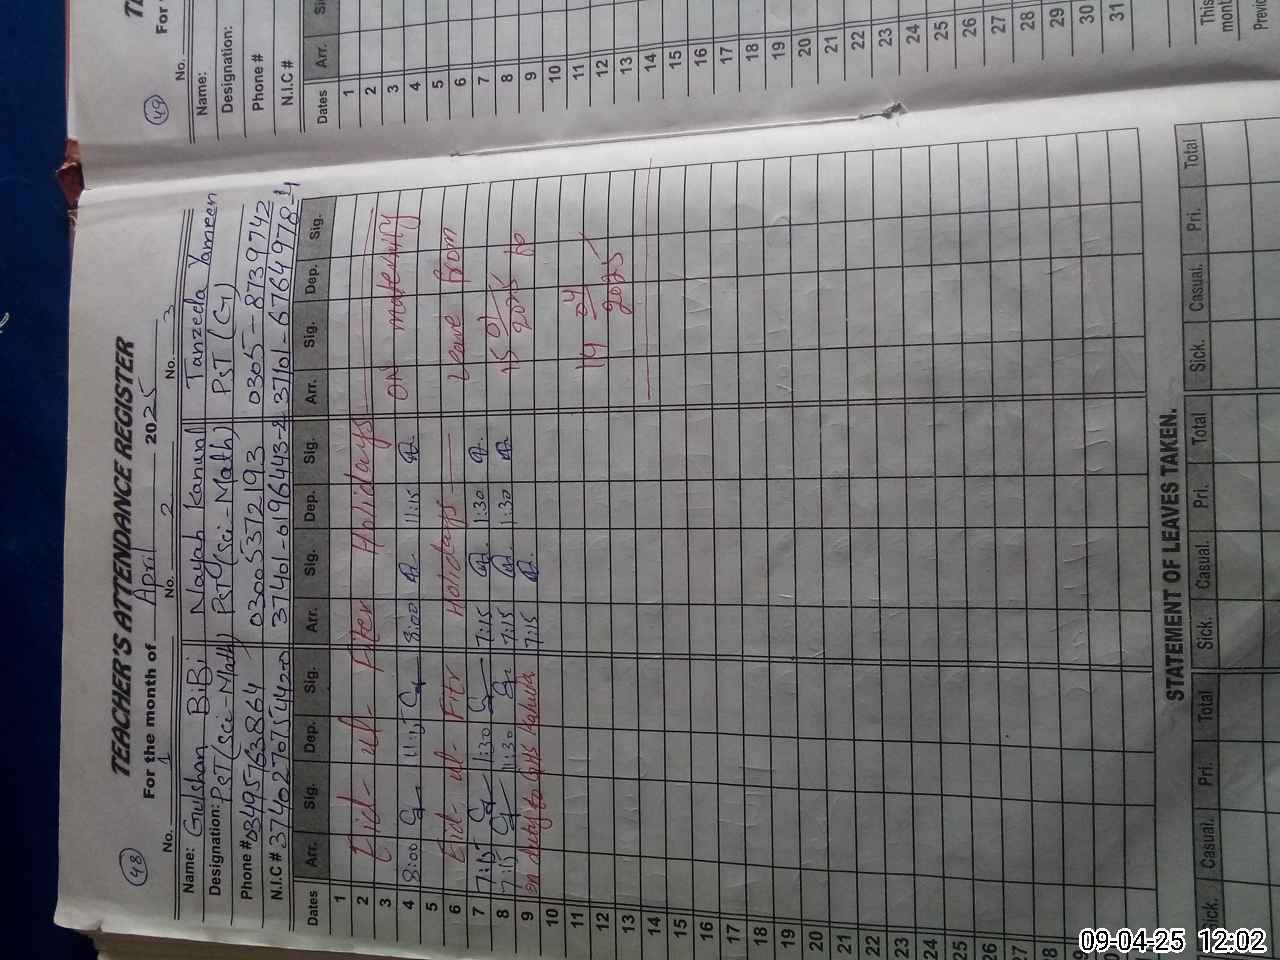 48
TEACHER'S ATTENDANCE REGISTER
For the month of April 2025
No. 1 No. 2 No. 3
Name: Gulshan BiBi Nayab Kanwal Tanzeela Yameen
Designation: PST (Sci-Math) PST (Sci-Math) PST (G)
Phone # 03495763864 03005372193 0305-8739742
N.I.C # 37401-6196443-2 37101-6764978-4
Dates Arr. Sig. Dep. Sig. Arr. Sig. Dep. Sig. Arr. Sig. Dep. Sig.
1
2 Eid-ul-Fiter Holidays
3
4 8:00 11:15 8:00 11:15 ON maternity
5
6 Eid-ul-Fitr Holidays Leave from
7 7:15 1:30 7:15 1:30
8 7:15 1:30 7:15 1:30 15 01/2025 to
9 on duty to GHS 7:15
10
11 14 04/
12
13 2025
14
15
16
17
18
19
20
21
22
23
24
25
26
27
28
29
30
31
STATEMENT OF LEAVES TAKEN.
Sick. Casual. Pri. Total Sick. Casual. Pri. Total Sick. Casual. Pri. Total
49
No.
Name:
Designation:
Phone #
N.I.C #
Dates Arr.
1
2
3
4
5
6
7
8
9
10
11
12
13
14
15
16
17
18
19
20
21
22
23
24
25
26
27
28
29
30
31
This
mont
Previo
09-04-25 12:02